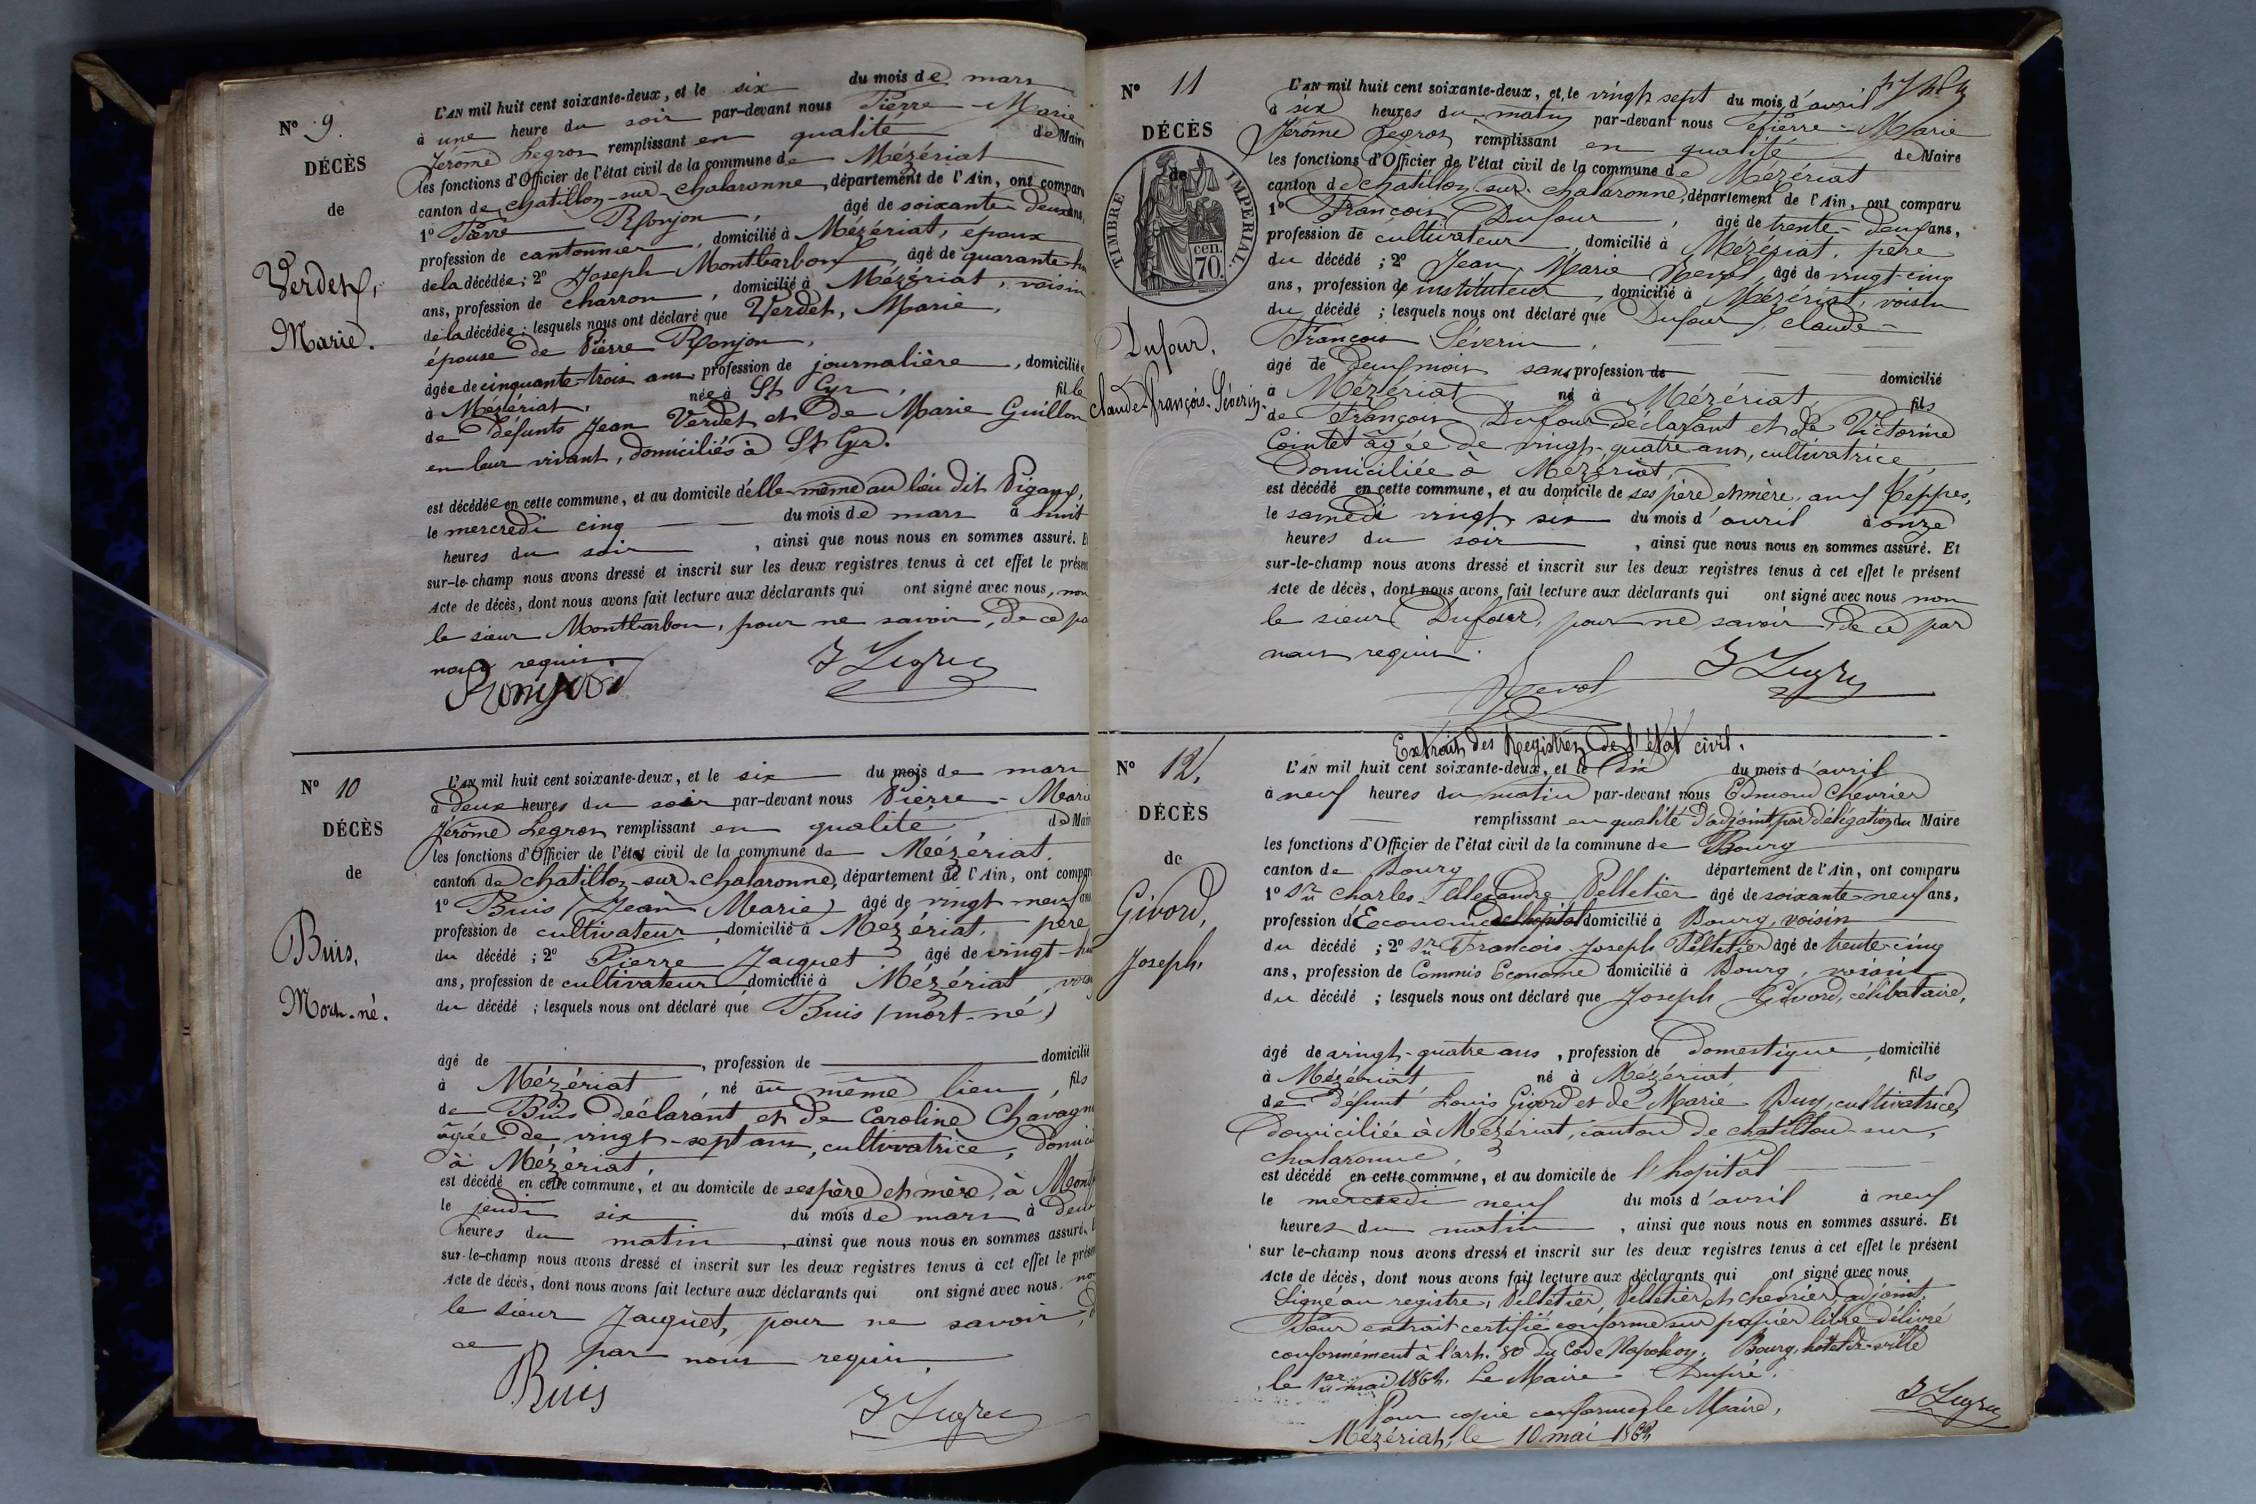 N° 9.
DÉCÈS
de
Verdet,
Marie.
L'AN mil huit cent soixante-deux, et le six du mois de mars
à une heure du soir par-devant nous Pierre-Marie
Jérôme Legros remplissant en qualité de Maire
les fonctions d'Officier de l'état civil de la commune de Mézériat
canton de chatillon-sur-chalaronne, département de l'Ain, ont comparu
1° Pierre Ronjon, âgé de soixante deux ans,
profession de cantonnier, domicilié à Mézériat, époux
de la décédée; 2° Joseph Montbarbon, âgé de quarante
ans, profession de charron, domicilié à Mézériat, voisin
de la décédée; lesquels nous ont déclaré que Verdet, Marie,
épouse de Pierre Ronjon,
âgée de cinquante-trois ans profession de journalière, domiciliée
à Mézériat, née à St Cyr, fille
de défunts Jean Verdet et de Marie Guillon
en leur vivant, domiciliés à St Cyr.
est décédée en cette commune, et au domicile d'elle-même au lieu dit
le mercredi cinq du mois de mars à huit
heures du soir, ainsi que nous nous en sommes assuré. Et
sur-le-champ nous avons dressé et inscrit sur les deux registres tenus à cet effet le présent
Acte de décès, dont nous avons fait lecture aux déclarants qui ont signé avec nous, non
le sieur Montbarbon, pour ne savoir, de ce pa
nous requis
Ronjon
J Legros
N° 10
DÉCÈS
de
Buis,
Mort-né.
L'AN mil huit cent soixante-deux, et le six du mois de mars
à deux heures du soir par-devant nous Pierre-Marie
Jérôme Legros remplissant en qualité de Maire
les fonctions d'Officier de l'état civil de la commune de Mézériat.
canton de chatillon-sur-chalaronne, département de l'Ain, ont comparu
1° Buis (Jean Marie) âgé de vingt neuf ans
profession de cultivateur, domicilié à Mézériat, père
du décédé; 2° Pierre Jacquet âgé de vingt-
ans, profession de cultivateur domicilié à Mézériat,
du décédé; lesquels nous ont déclaré que Buis (mort-né)
âgé de , profession de domicilié
à Mézériat, né au même lieu, fils
de Buis déclarant et de Caroline
âgée de vingt-sept ans, cultivatrice,
à Mézériat,
est décédé en cette commune, et au domicile de ses père et mère, à
le jeudi six du mois de mars à deux
heures du matin, ainsi que nous nous en sommes assuré.
sur-le-champ nous avons dressé et inscrit sur les deux registres tenus à cet effet le présent
Acte de décès, dont nous avons fait lecture aux déclarants qui ont signé avec nous, non
le sieur Jacquet, pour ne savoir,
ce par nous requis.
Buis
J Legros
N° 11
DÉCÈS
de
TIMBRE IMPÉRIAL
70 cen.
Dufour,
Claude-François-Séverin.
L'AN mil huit cent soixante-deux, et le vingt sept du mois d'avril
à six heures du matin par-devant nous Pierre-Marie
Jérôme Legros remplissant en qualité de Maire
les fonctions d'Officier de l'état civil de la commune de Mézériat
canton de chatillon-sur-chalaronne, département de l'Ain, ont comparu
1° François Dufour, âgé de trente-deux ans,
profession de cultivateur, domicilié à Mézériat, père
du décédé; 2° Jean Marie Revol, âgé de vingt-cinq
ans, profession de instituteur, domicilié à Mézériat, voisin
du décédé; lesquels nous ont déclaré que Dufour, claude-
François Séverin,
âgé de deux mois sans profession de domicilié
à Mézériat né à Mézériat, fils
de François Dufour déclarant et de Victorine
Cointet âgée de vingt-quatre ans, cultivatrice,
Domiciliée à Mézériat,
est décédé en cette commune, et au domicile de ses père et mère, aux Teppes,
le samedi vingt six du mois d'avril à onze
heures du soir, ainsi que nous nous en sommes assuré. Et
sur-le-champ nous avons dressé et inscrit sur les deux registres tenus à cet effet le présent
Acte de décès, dont nous avons fait lecture aux déclarants qui ont signé avec nous non
le sieur Dufour, pour ne savoir, de ce par
nous requis.
Revol
J Legros
N° 12,
DÉCÈS
de
Givord,
Joseph,
Extrait des Registres de l'état civil.
L'AN mil huit cent soixante-deux, et le dix du mois d'avril
à neuf heures du matin par-devant nous Edmond Chevrier
remplissant en qualité d'adjoint par délégation du Maire
les fonctions d'Officier de l'état civil de la commune de Bourg
canton de Bourg département de l'Ain, ont comparu
1° Sr Charles Alexandre Pelletier âgé de soixante neuf ans,
profession d'Econome de l'hopital domicilié à Bourg, voisin
du décédé; 2° Sr François Joseph Pelletier âgé de trente-cinq
ans, profession de Commis Econome domicilié à Bourg, voisin
du décédé; lesquels nous ont déclaré que Joseph Givord, célibataire,
âgé de vingt-quatre ans, profession de Domestique, domicilié
à Mézériat né à Mézériat fils
de défunt Louis Givord et de Marie Buy, cultivatrice,
domiciliée à Mézériat, canton de chatillon-sur-
chalaronne,
est décédé en cette commune, et au domicile de l'hopital
le mercredi neuf du mois d'avril à neuf
heures du matin, ainsi que nous nous en sommes assuré. Et
sur le-champ nous avons dressé et inscrit sur les deux registres tenus à cet effet le présent
Acte de décès, dont nous avons fait lecture aux déclarants qui ont signé avec nous
Signé au registre, Pelletier, Pelletier et chevrier, adjoint.
Pour extrait certifié conforme sur papier libre délivré
conformément à l'art. 80 du Code Napoléon. Bourg, hôtel de-ville
le 1er mai 1862. Le Maire
Pour copie conforme le Maire,
Mézériat, le 10 mai 1862
J Legros